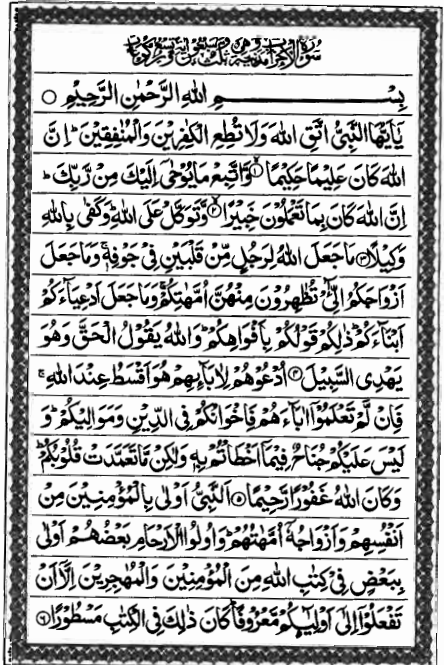 سُوْرَةُ الْاَحْزَابِ مَدَنِيَّةٌ وَّهِيَ ثَلٰثٌ وَّسَبْعُوْنَ اٰيَةً وَّتِسْعُ رُكُوْعَاتٍ
بِسْمِ اللهِ الرَّحْمٰنِ الرَّحِيْمِ ○
يٰۤاَيُّهَا النَّبِيُّ اتَّقِ اللهَ وَلَا تُطِعِ الْكٰفِرِيْنَ وَالْمُنٰفِقِيْنَ ؕ اِنَّ
اللهَ كَانَ عَلِيْمًا حَكِيْمًا ۙ﴿۱﴾ وَّاتَّبِعْ مَا يُوْحٰۤى اِلَيْكَ مِنْ رَّبِّكَ ؕ
اِنَّ اللهَ كَانَ بِمَا تَعْمَلُوْنَ خَبِيْرًا ۙ﴿۲﴾ وَّتَوَكَّلْ عَلَى اللهِ ؕ وَكَفٰى بِاللهِ
وَكِيْلًا ﴿۳﴾ مَا جَعَلَ اللهُ لِرَجُلٍ مِّنْ قَلْبَيْنِ فِيْ جَوْفِهٖ ۚ وَمَا جَعَلَ
اَزْوَاجَكُمُ الّٰٓئِيْ تُظٰهِرُوْنَ مِنْهُنَّ اُمَّهٰتِكُمْ ۚ وَمَا جَعَلَ اَدْعِيَآءَكُمْ
اَبْنَآءَكُمْ ؕ ذٰلِكُمْ قَوْلُكُمْ بِاَفْوَاهِكُمْ ؕ وَاللهُ يَقُوْلُ الْحَقَّ وَهُوَ
يَهْدِي السَّبِيْلَ ﴿۴﴾ اُدْعُوْهُمْ لِاٰبَآئِهِمْ هُوَ اَقْسَطُ عِنْدَ اللهِ ۚ
فَاِنْ لَّمْ تَعْلَمُوْۤا اٰبَآءَهُمْ فَاِخْوَانُكُمْ فِي الدِّيْنِ وَمَوَالِيْكُمْ ؕ وَ
لَيْسَ عَلَيْكُمْ جُنَاحٌ فِيْمَاۤ اَخْطَاْتُمْ بِهٖ ۙ وَلٰكِنْ مَّا تَعَمَّدَتْ قُلُوْبُكُمْ ؕ
وَكَانَ اللهُ غَفُوْرًا رَّحِيْمًا ﴿۵﴾ اَلنَّبِيُّ اَوْلٰى بِالْمُؤْمِنِيْنَ مِنْ
اَنْفُسِهِمْ وَاَزْوَاجُهٗۤ اُمَّهٰتُهُمْ ؕ وَاُولُوا الْاَرْحَامِ بَعْضُهُمْ اَوْلٰى
بِبَعْضٍ فِيْ كِتٰبِ اللهِ مِنَ الْمُؤْمِنِيْنَ وَالْمُهٰجِرِيْنَ اِلَّاۤ اَنْ
تَفْعَلُوْۤا اِلٰۤى اَوْلِيٰٓئِكُمْ مَّعْرُوْفًا ؕ كَانَ ذٰلِكَ فِي الْكِتٰبِ مَسْطُوْرًا ﴿۶﴾